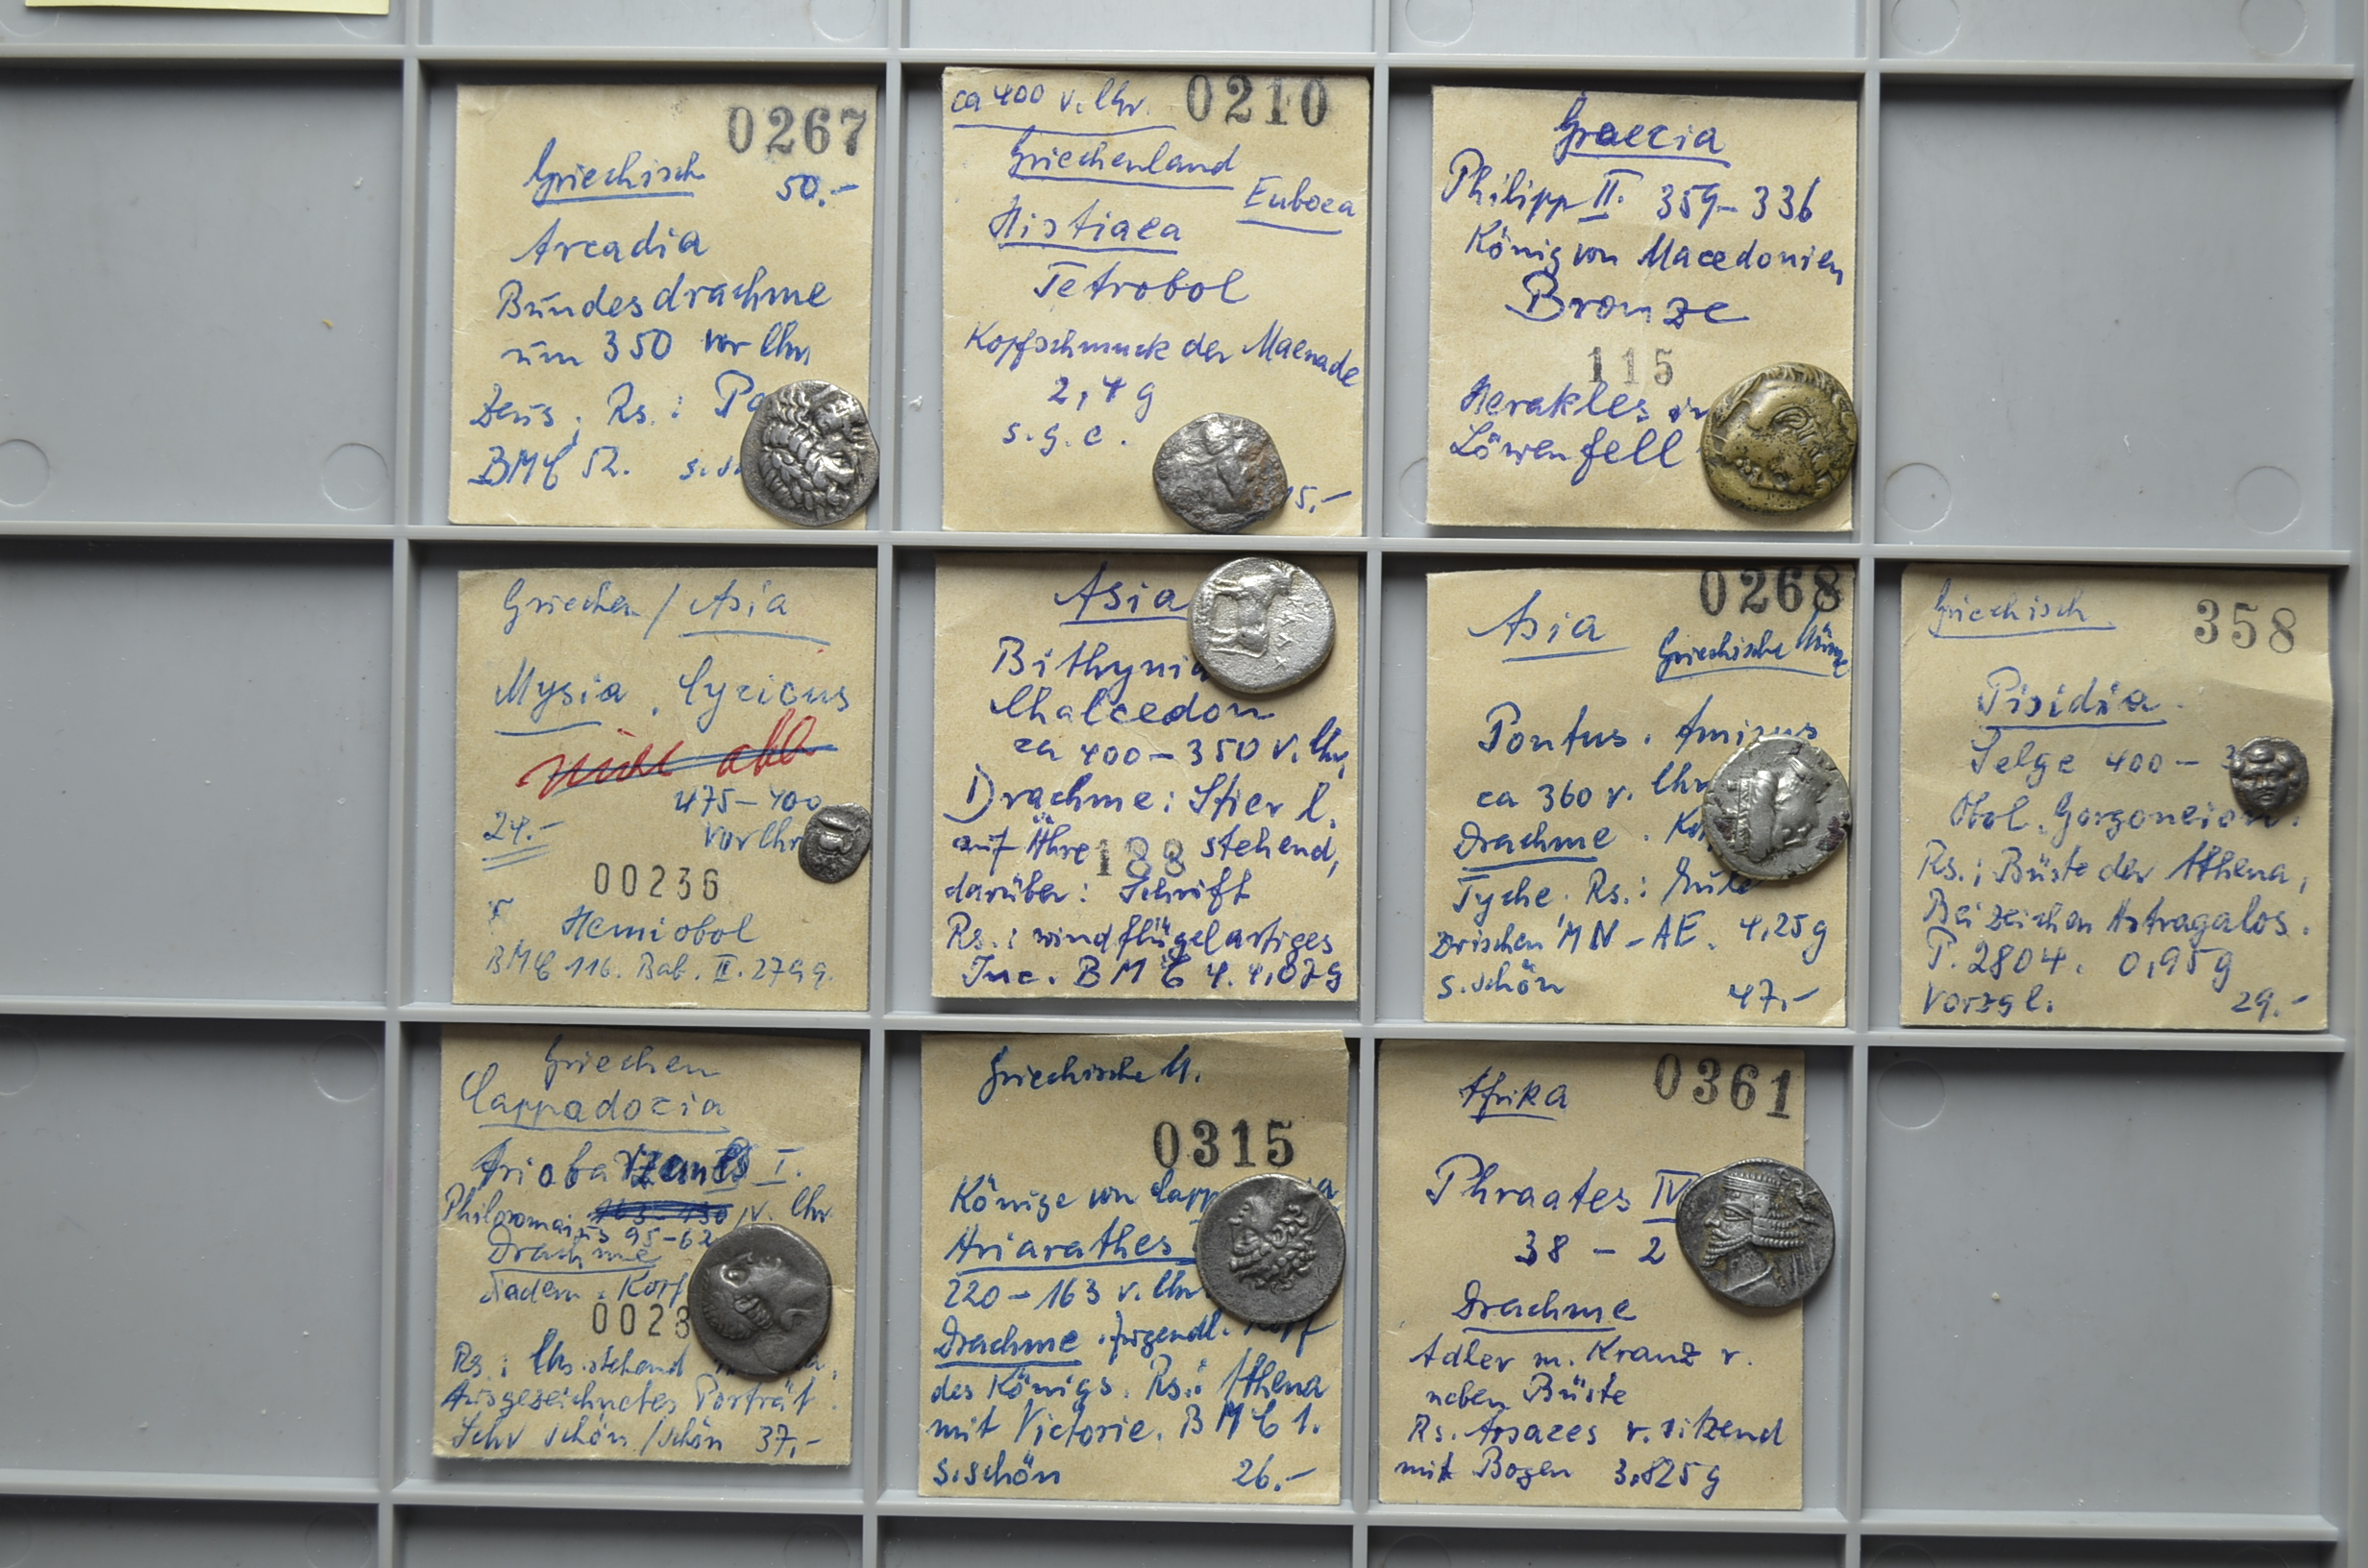 0267
Griechisch 50.-
Arcadia
Bundesdrachme
um 350 vor Chr
Zeus, Rs.:
BMC 52.
ca 400 v. Chr. 0210
Griechenland
Euboea
Histiaea
Tetrobol
Kopfschmuck der Maenade
2,4g
s.g.e.
5.-
Graecia
Philipp II. 359-336
König von Macedonien
Bronze
115
Herakles in
Löwenfell
Griechen / Asia
Mysia, Cyzicus
475-400
24.- vor Chr
00236
Hemiobol
BMC 116. Bab. II. 2799.
Asia
Bithynia
Chalcedon
ca 400-350 v. Chr.
Drachme: Stier l.
auf Ähre 188 stehend,
darüber: Schrift
Rs.: windflügelartiges
Inc. BMC 4. 4,07g
0268
Asia
Griechische Münze
Pontus. Amisus
ca 360 v. Chr
Drachme.
Tyche. Rs.: Eule
zwischen MN-AE. 4,25g
s.schön 47.-
Griechisch 358
Pisidia
Selge 400-
Obol. Gorgoneion.
Rs.: Büste der Athena,
Beizeichen Astragalos.
P. 2804. 0,95g
Vorzgl. 29.-
Griechen
Cappadozia
Ariobarzanes I.
Philoromaius v. Chr
95-62
Drachme
Diadem. Kopf
0023
Rs.: stehend
Ausgezeichnetes Porträt.
Sehr schön/schön 37.-
Griechische M.
0315
Könige von
Ariarathes
220-163 v. Chr
Drachme. jugendl. Kopf
des Königs. Rs.: Athena
mit Victorie. BMC 1.
s.schön 26.-
0361
Afrika
Phraates IV
38 - 2
Drachme
Adler m. Kranz r.
neben Büste
Rs. Arsaces r. sitzend
mit Bogen 3.825g